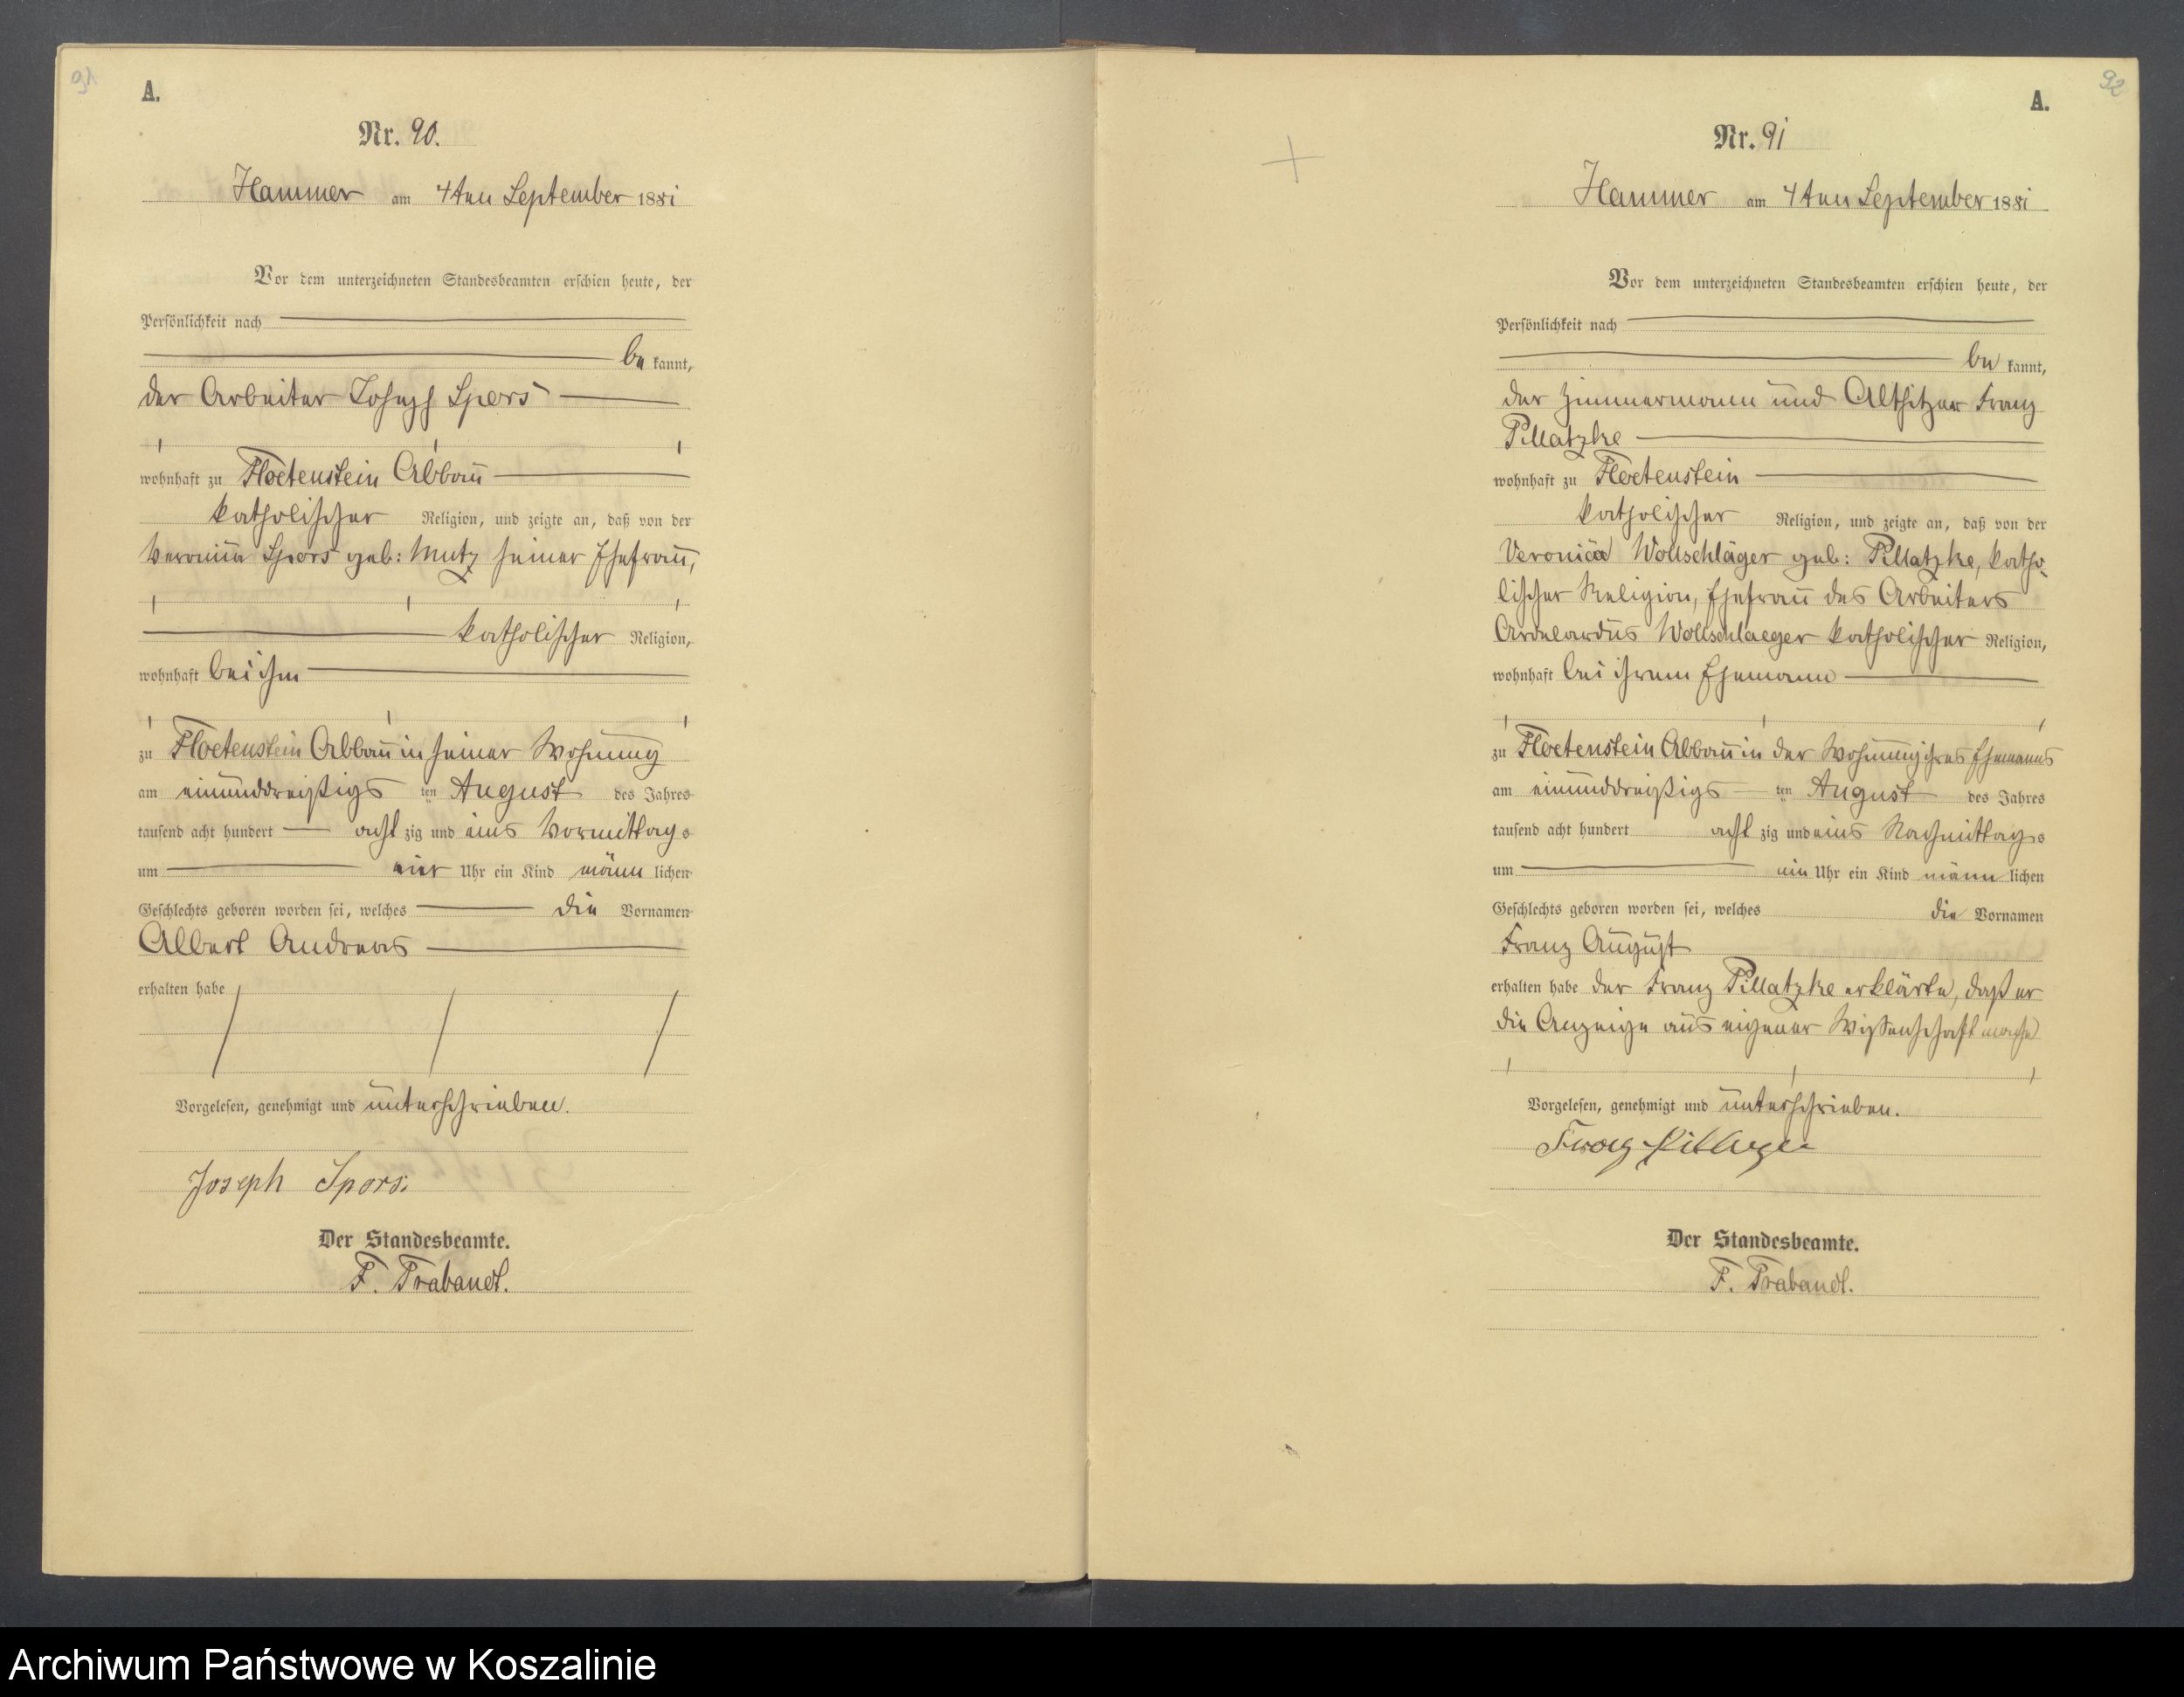 91
A.
Nr. 90.
Hammer am 4ten September 1881
Vor dem unterzeichneten Standesbeamten erschien heute, der
Persönlichkeit nach
be kannt,
der Arbeiter Joseph Spors
wohnhaft zu Floetenstein Abbau
katholischer Religion, und zeigte an, daß von der
Veronica Spors geb: Mutz seiner Ehefrau,
katholischer Religion,
wohnhaft bei ihm
zu Floetenstein Abbau in seiner Wohnung
am einunddreißigs ten August des Jahres
tausend acht hundert acht zig und eins Vormittags
um vier Uhr ein Kind männ lichen
Geschlechts geboren worden sei, welches die Vornamen
Albert Andreas
erhalten habe
Vorgelesen, genehmigt und unterschrieben.
Joseph Spors.
Der Standesbeamte.
F. Trabandt.
92
A.
Nr. 91
Hammer am 4ten September 1881
Vor dem unterzeichneten Standesbeamten erschien heute, der
Persönlichkeit nach
be kannt,
der Zimmermann und Altsitzer Franz
Pillatzke
wohnhaft zu Floetenstein
katholischer Religion, und zeigte an, daß von der
Veronica Wollschläger geb: Pillatzke, katho-
lischer Religion, Ehefrau des Arbeiters
Wollschlaeger katholischer Religion,
wohnhaft bei ihrem Ehemann
zu Floetenstein Abbau in der Wohnung ihres Ehemanns
am einunddreißigs ten August des Jahres
tausend acht hundert acht zig und eins Nachmittags
um ein Uhr ein Kind männ lichen
Geschlechts geboren worden sei, welches die Vornamen
Franz August
erhalten habe der Franz Pillatzke erklärte, daß er
die Anzeige aus eigener Wißenschaft mache
Vorgelesen, genehmigt und unterschrieben.
Franz
Der Standesbeamte.
F. Trabandt.
Archiwum Państwowe w Koszalinie